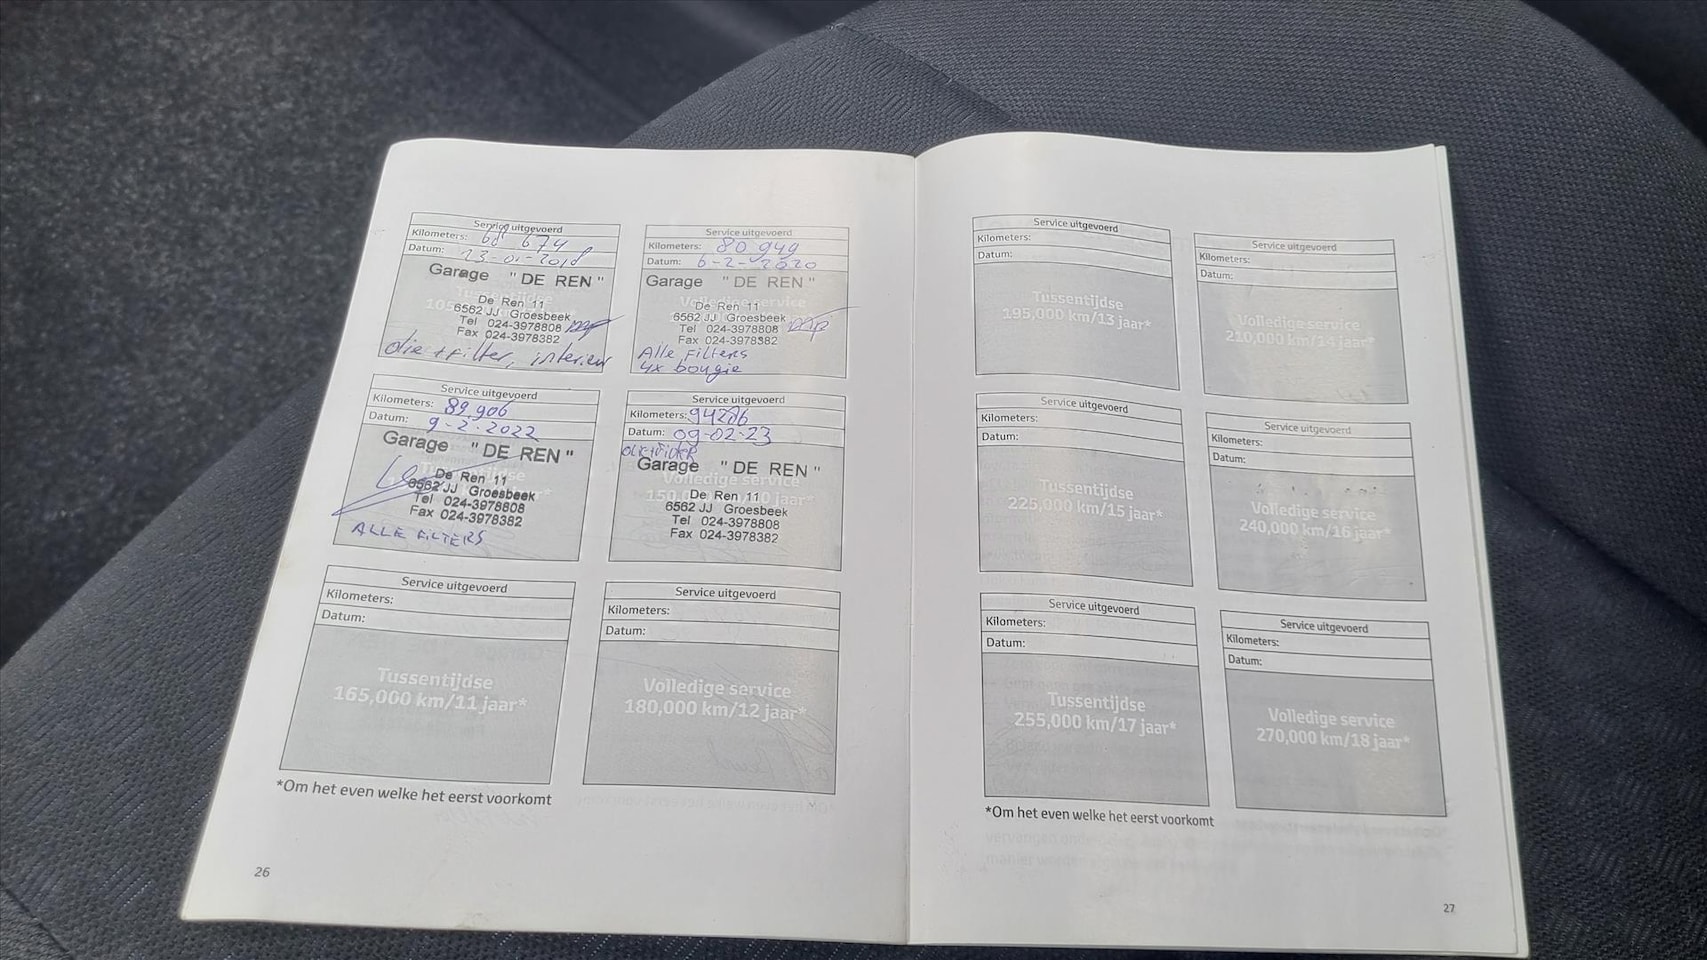 Service uitgevoerd
Kilometers: 68 674
Datum: 23-01-2018
Garage "DE REN"
De Ren 11
6562 JJ Groesbeek
Tel 024-3978808
Fax 024-3978382
olie + filter, interieur
Service uitgevoerd
Kilometers: 80 949
Datum: 6-2-2020
Garage "DE REN"
Volledige service
De Ren 11
6562 JJ Groesbeek
Tel 024-3978808
Fax 024-3978382
Alle Filters
4x bougie
Service uitgevoerd
Kilometers: 89.906
Datum: 9-2-2022
Garage "DE REN"
De Ren 11
6562 JJ Groesbeek
Tel 024-3978808
Fax 024-3978382
ALLE FILTERS
Service uitgevoerd
Kilometers: 94286
Datum: 09-02-23
Garage "DE REN"
Volledige service
De Ren 11
6562 JJ Groesbeek
Tel 024-3978808
Fax 024-3978382
Service uitgevoerd
Kilometers:
Datum:
Tussentijdse
165,000 km/11 jaar*
Service uitgevoerd
Kilometers:
Datum:
Volledige service
180,000 km/12 jaar*
*Om het even welke het eerst voorkomt
26
Service uitgevoerd
Kilometers:
Datum:
Tussentijdse
195,000 km/13 jaar*
Service uitgevoerd
Kilometers:
Datum:
Volledige service
210,000 km/14 jaar*
Service uitgevoerd
Kilometers:
Datum:
Tussentijdse
225,000 km/15 jaar*
Service uitgevoerd
Kilometers:
Datum:
Volledige service
240,000 km/16 jaar*
Service uitgevoerd
Kilometers:
Datum:
Tussentijdse
255,000 km/17 jaar*
Service uitgevoerd
Kilometers:
Datum:
Volledige service
270,000 km/18 jaar*
*Om het even welke het eerst voorkomt
27